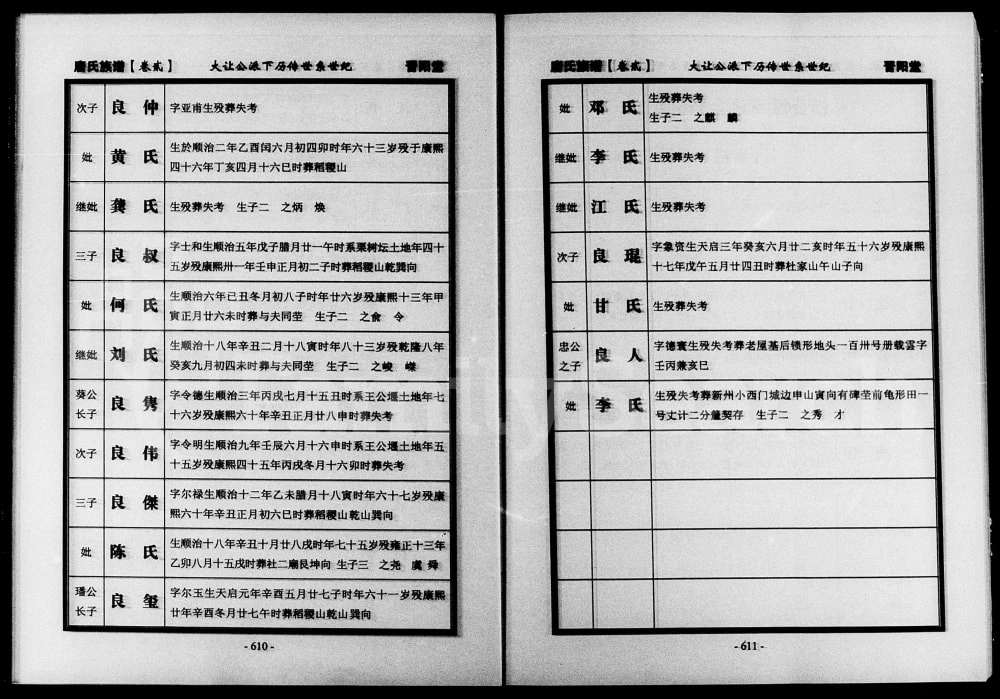 唐氏族谱【卷贰】 大让公派下历传世系世纪 晋阳堂
次子 良仲 字亚甫生殁葬失考
妣 黄氏 生於顺治二年乙酉闰六月初四卯时年六十三岁殁于康熙
四十六年丁亥四月十六巳时葬稻稷山
继妣 龚氏 生殁葬失考 生子二 之炳 焕
三子 良叔 字士和生顺治五年戊子腊月廿一午时系栗树坛土地年四十
五岁殁康熙卅一年壬申正月初二子时葬稻稷山乾巽向
妣 何氏 生顺治六年已丑冬月初八子时年廿六岁殁康熙十三年甲
寅正月廿六未时葬与夫同茔 生子二 之俞 令
继妣 刘氏 生顺治十八年辛丑二月十八寅时年八十三岁殁乾隆八年
癸亥九月初四未时葬与夫同茔 生子二 之峻 嵘
葵公
长子 良隽 字令德生顺治三年丙戌七月十五丑时系王公堰土地年七
十六岁殁康熙六十年辛丑正月廿八申时葬失考
次子 良伟 字令明生顺治九年壬辰六月十六申时系王公堰土地年五
十五岁殁康熙四十五年丙戌冬月十六卯时葬失考
三子 良傑 字尔禄生顺治十二年乙未腊月十八寅时年六十七岁殁康
熙六十年辛丑正月初六巳时葬稻稷山乾山巽向
妣 陈氏 生顺治十八年辛丑十月廿八戌时年七十五岁殁雍正十三年
乙卯八月十五戌时葬社二廟艮坤向 生子三 之尧 虞 舜
璠公
长子 良玺 字尔玉生天启元年辛酉五月廿七子时年六十一岁殁康熙
廿年辛酉冬月廿七午时葬稻稷山乾山巽向
- 610 -
唐氏族谱【卷贰】 大让公派下历传世系世纪 晋阳堂
妣 邓氏 生殁葬失考
生子二 之麒 麟
继妣 李氏 生殁葬失考
继妣 江氏 生殁葬失考
次子 良琨 字象资生天启三年癸亥六月廿二亥时年五十六岁殁康熙
十七年戊午五月廿四丑时葬杜家山午山子向
妣 甘氏 生殁葬失考
忠公
之子 良人 字德寰生殁失考葬老屋基后锁形地头一百卅号册载雲字
壬丙兼亥巳
妣 李氏 生殁失考葬新州小西门城边申山寅向有碑茔前龟形田一
号丈计二分釐契存 生子二 之秀 才
- 611 -